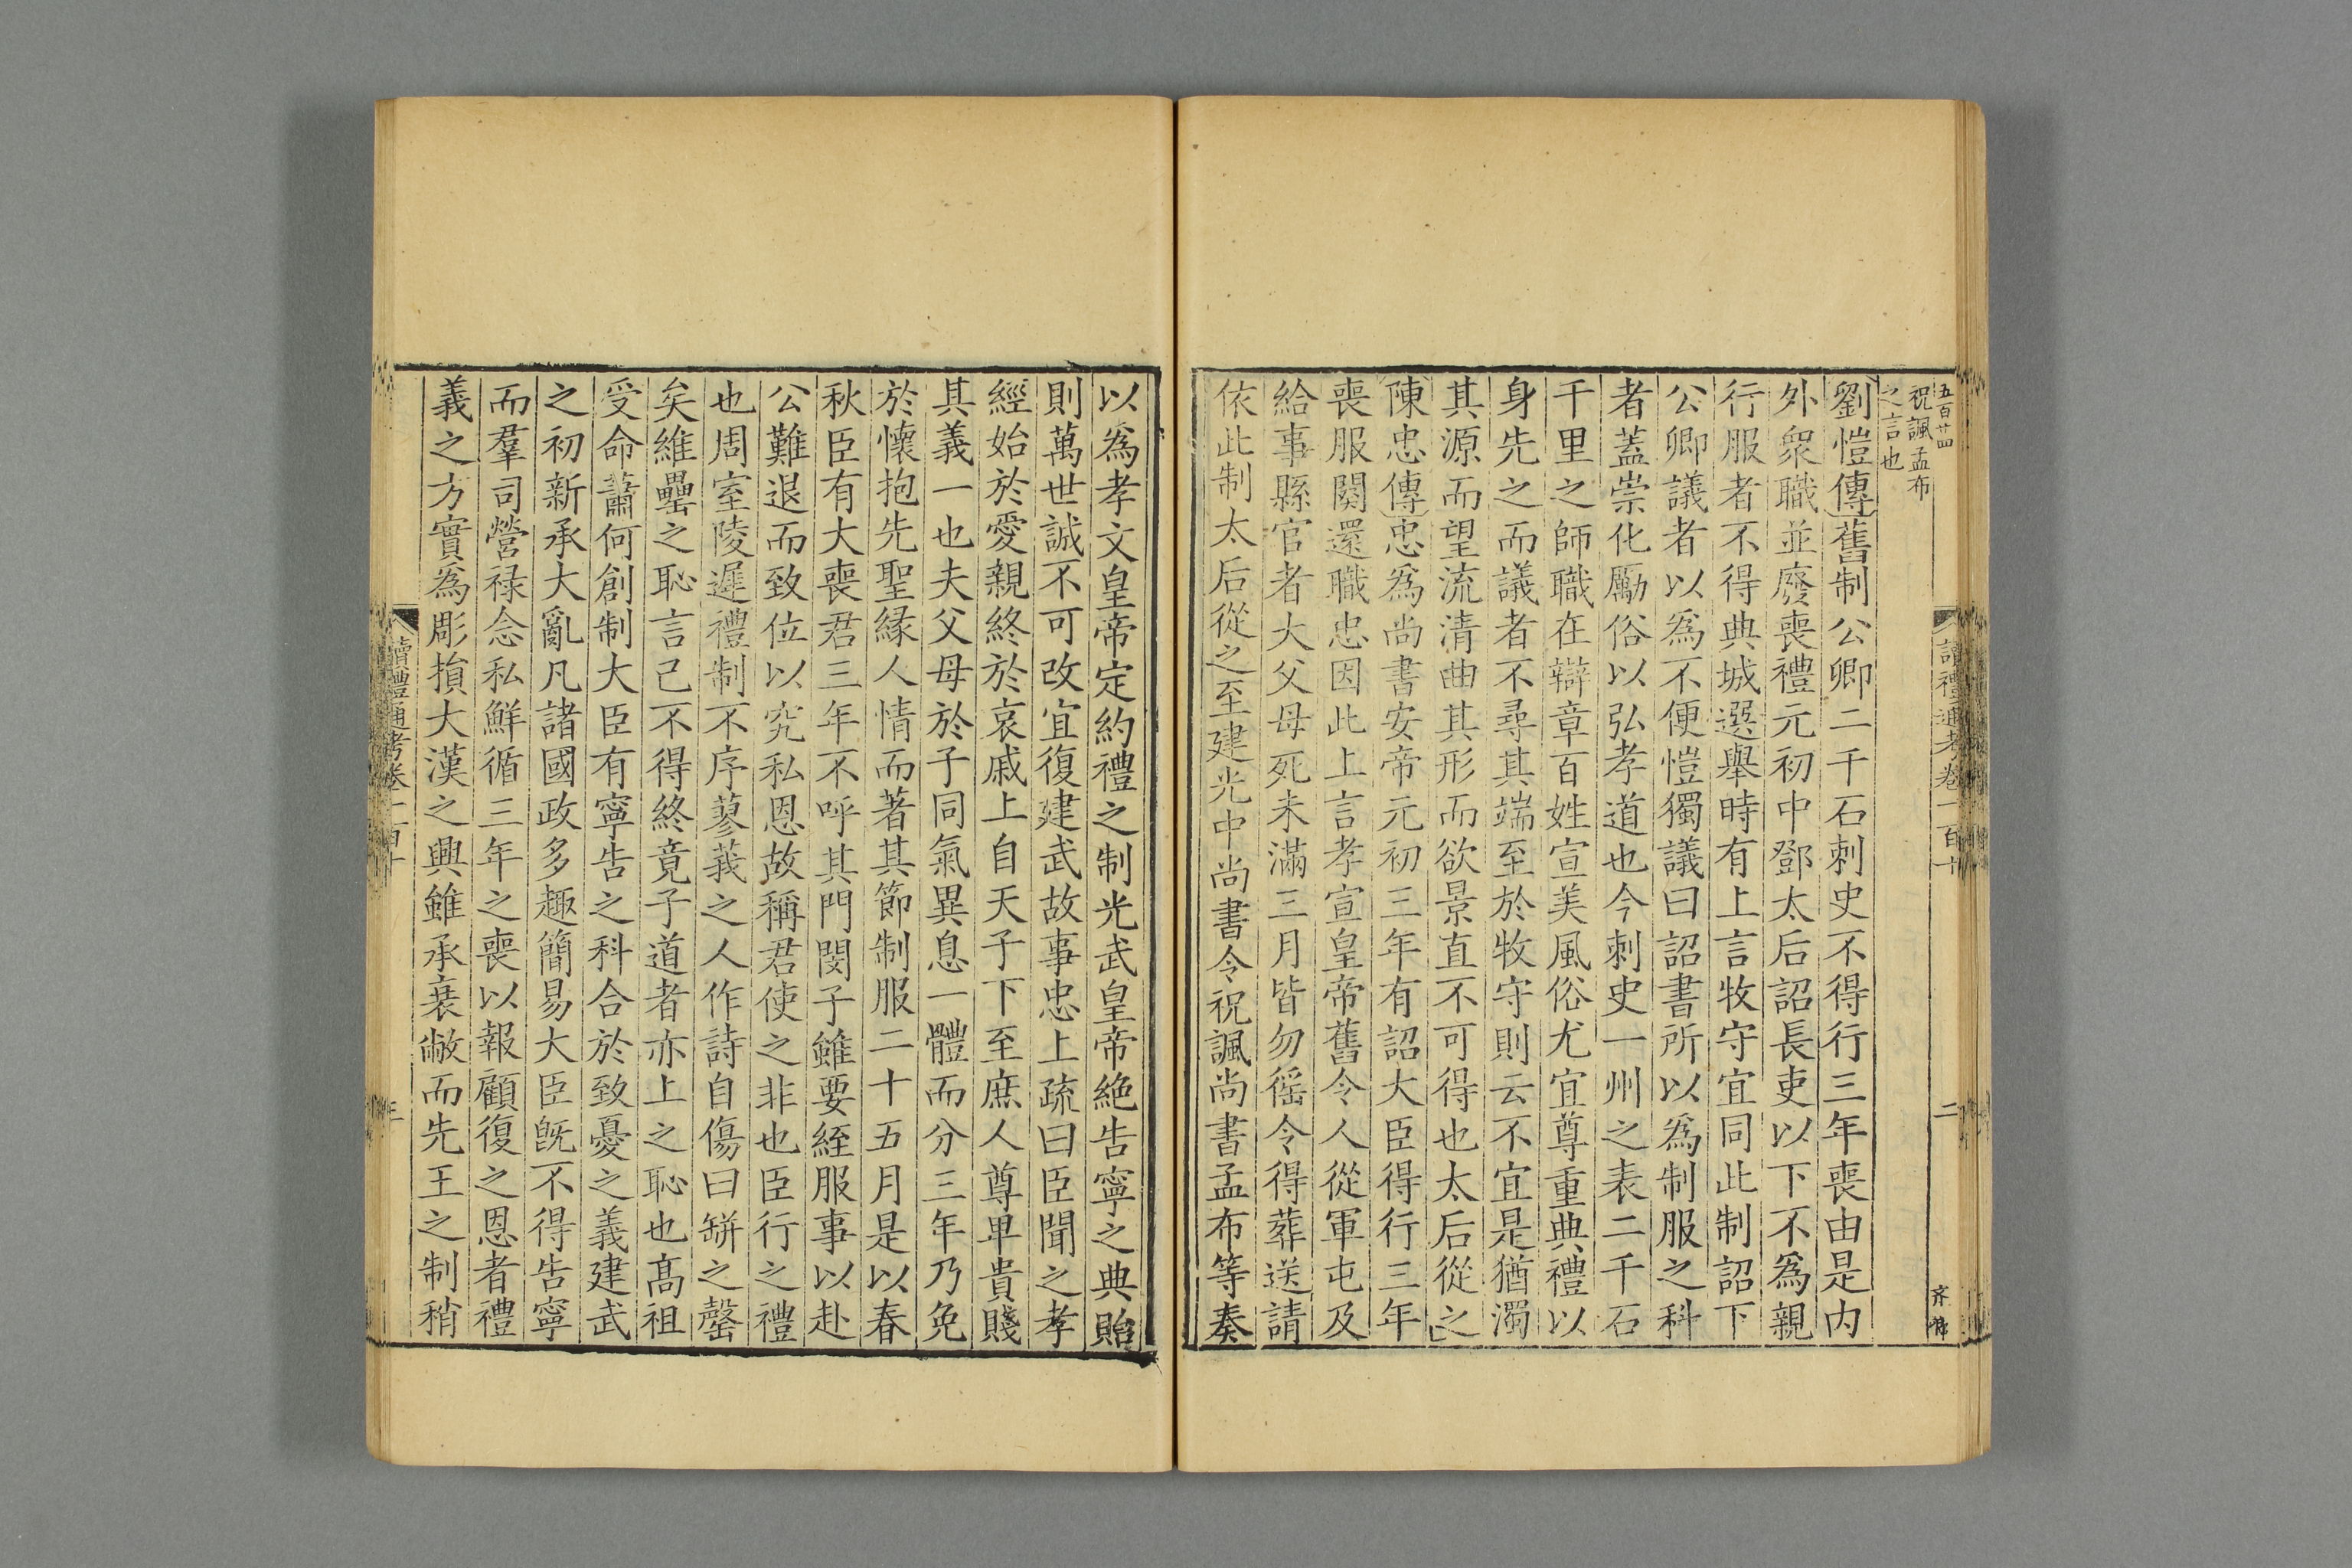 五百廿四
讀禮通考卷一百十
二
祝諷孟布
之言也
劉愷傳舊制公卿二千石刺史不得行三年喪由是内
外衆職並廢喪禮元初中鄧太后詔長吏以下不為親
行服者不得典城選舉時有上言牧守宜同此制詔下
公卿議者以為不便愷獨議曰詔書所以為制服之科
者蓋崇化勵俗以弘孝道也今刺史一州之表二千石
千里之師職在辯章百姓宣美風俗尤宜尊重典禮以
身先之而議者不尋其端至於牧守則云不宜是猶濁
其源而望流清曲其形而欲景直不可得也太后從之
陳忠傳忠為尚書安帝元初三年有詔大臣得行三年
喪服闋還職忠因此上言孝宣皇帝舊令人從軍屯及
給事縣官者大父母死未滿三月皆勿徭令得葬送請
依此制太后從之至建光中尚書令祝諷尚書孟布等奏
以為孝文皇帝定約禮之制光武皇帝絶告寧之典貽
則萬世誠不可改宜復建武故事忠上疏曰臣聞之孝
經始於愛親終於哀戚上自天子下至庶人尊卑貴賤
其義一也夫父母於子同氣異息一體而分三年乃免
於懷抱先聖縁人情而著其節制服二十五月是以春
秋臣有大喪君三年不呼其門閔子雖要絰服事以赴
公難退而致位以究私恩故稱君使之非也臣行之禮
也周室陵遲禮制不序蓼莪之人作詩自傷曰缾之罄
矣維罍之恥言己不得終竟子道者亦上之恥也髙祖
受命蕭何創制大臣有寧告之科合於致憂之義建武
之初新承大亂凡諸國政多趣簡易大臣旣不得告寧
而羣司營禄念私鮮循三年之喪以報顧復之恩者禮
義之方實為彫損大漢之興雖承衰敝而先王之制稍
讀禮通考卷一百十
三